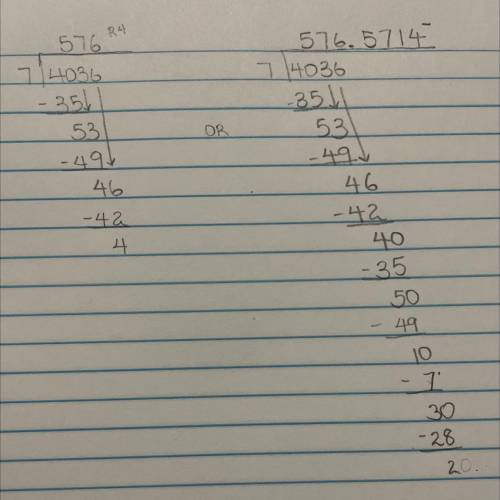 576 R4
7 4036
-35
53
-49
46
-42
4
OR
576.5714
7 4036
-35
53
-49
46
-42
40
-35
50
- 49
10
- 7
30
-28
20